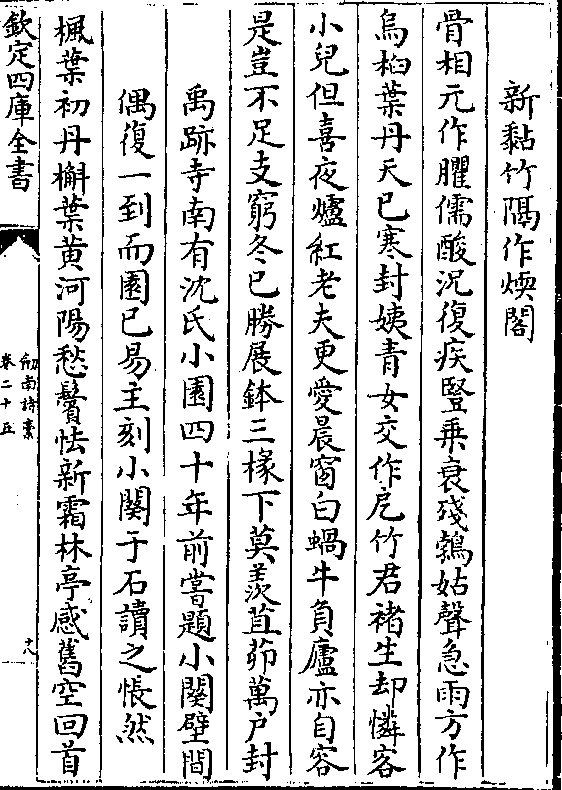 新黏竹隔作煗閣
骨相元作臞儒酸況復疾豎乗衰殘鵓姑聲急雨方作
烏桕葉丹天已寒封姨青女交作戹竹君褚生却憐客
小兒但喜夜爐紅老夫更愛晨窗白蝸牛負廬亦自容
是豈不足支窮冬已勝展鉢三椽下莫羡苴茆萬户封
禹跡寺南有沈氏小園四十年前嘗題小闋壁間
偶復一到而園已易主刻小闋于石讀之悵然
楓葉初丹槲葉黄河陽愁鬢怯新霜林亭感舊空回首
欽定四庫全書
劒南詩稾
卷二十五
十八